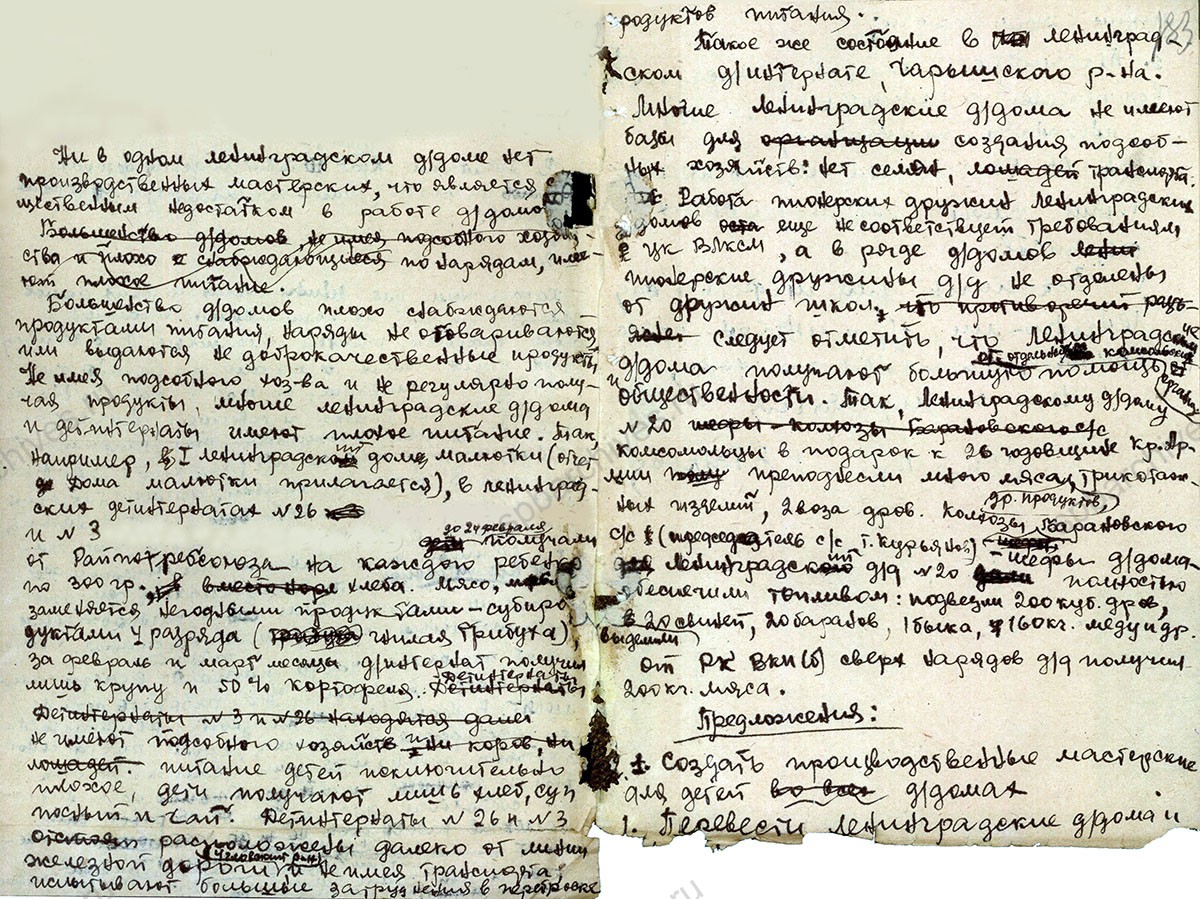 Ни в одном ленинградском д/доме нет
производственных мастерских, что является
щественным недостатком в работе д/домов
Большинство д/домов, не имея подсобного хозяй-
ства и плохо снабжающиеся по нарядам, име-
ют плохое питание.
Большинство д/домов плохо снабжаются
продуктами питания, наряды не отовариваются,
или выдаются не доброкачественные продукты.
Не имея подсобного хоз-ва и не регулярно полу-
чая продукты, многие ленинградские д/дома
и детинтернаты имеют плохое питание. Так,
например, I ленинградский дом малютки (отчет
Дома малютки прилагается), в ленинград-
ских детинтернатах N 26
и N 3
до 24 февраля
дети получали
от Райпотребсоюза на каждого ребенка
по 300 гр. хлеба. Мясо,
заменяется негодными продуктами – субпро
дуктами 4 разряда (гнилая требуха),
за февраль и март месяцы д/интернат получил
лишь крупу и 50% картофеля. Детинтернаты
Детинтернаты
Детинтернаты N 3 и N 26 находятся далек
не имеют подсобного хозяйств и ни коров, ни
лошадей. питание детей исключительно
плохое, дети получают лишь хлеб, суп
постный и чай. Детинтернаты N 26 и N 3
расположены далеко от линии
железной дороги и не имея транспорта,
испытывают большие затруднения в перевозке
183
родуктов питания.
Такое же состояние в ленинград-
ском д/интернате, Чарышского р-на.
Многие ленинградские д/дома не имеют
базы для организации создания подсоб-
ных хозяйств: нет семян, лошадей транспорт.
Работа пионерских дружин ленинградских
д/домов еще не соответствует требованиям
ЦК ВЛКСМ, а в ряде д/домов лени
пионерские дружины д/д не отделены
от дружин школ, что противоречит разъ-
яснен следует отметить, что ленинградские
от комсомольских
д/дома получают большую помощь от
органи
и общественности. Так, Ленинградскому д/дому
N 20 шефы – колхозы Барановского с/с
комсомольцы в подарок к 26 годовщине Кр. Ар-
мии преподнесли много мяса, трикотаж-
др. продуктов,
ных изделий, 2 воза дров. Колхозы Барановского
с/с (председатель с/с т. Курьянов) шефы
Ленинградский д/д N 20 шефы д/дома
обеспечили топливом: подвезли 200 куб. дров,
выделили
20 свиней, 20 баранов, 1 быка, 160 кг. меду и др.
от РК ВКП(б) сверх нарядов д/д получил
200 кг. мяса.
Предложения:
1. Создать производственные мастерские
для детей во всех д/домах
1. Перевести ленинградские д/дома и